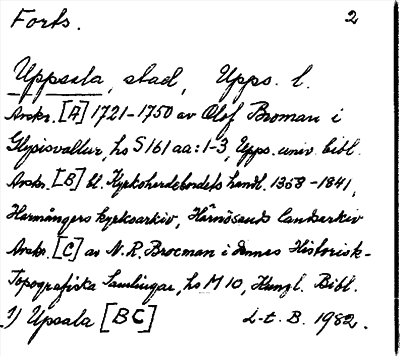 Forts. 2
Uppsala, stad, Upps. l.
Avskr. [A] 1721-1750 av Olof Broman i
Glysisvallur, hs S 161 aa:1-3, Upps. univ. bibl.
Avskr. [B] bl. Kyrkoherdebordets handl. 1358-1841,
Harmångers kyrkoarkiv, Härnösands landsarkiv
Avskr. [C] av N. R. Brocman i dennes Historisk-
Topografiska Samlingar, hs M 10, Kungl. Bibl.
1) Uppsala [BC] L-t. B. 1982.